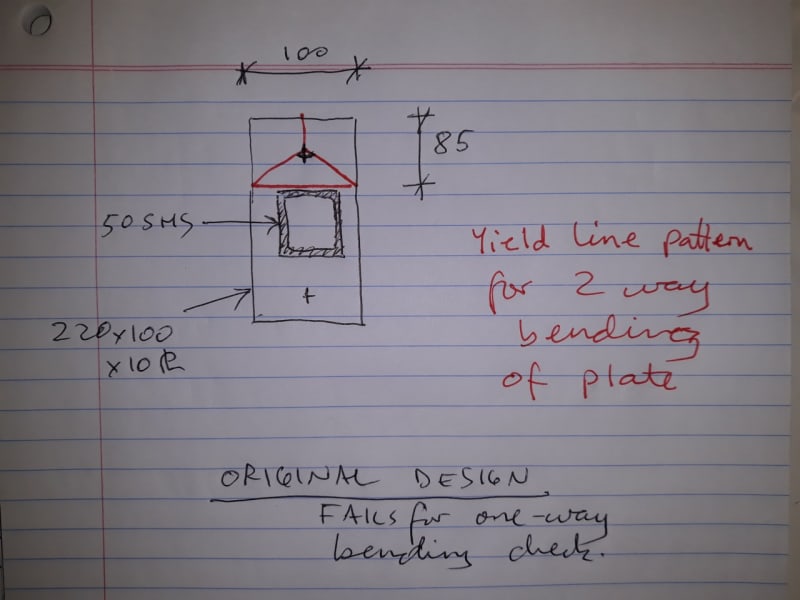 100
85
50 SHS
Yield line pattern
for 2 way
bending
of plate
220x100
x10 PL
ORIGINAL DESIGN
FAILS for one-way
bending check.